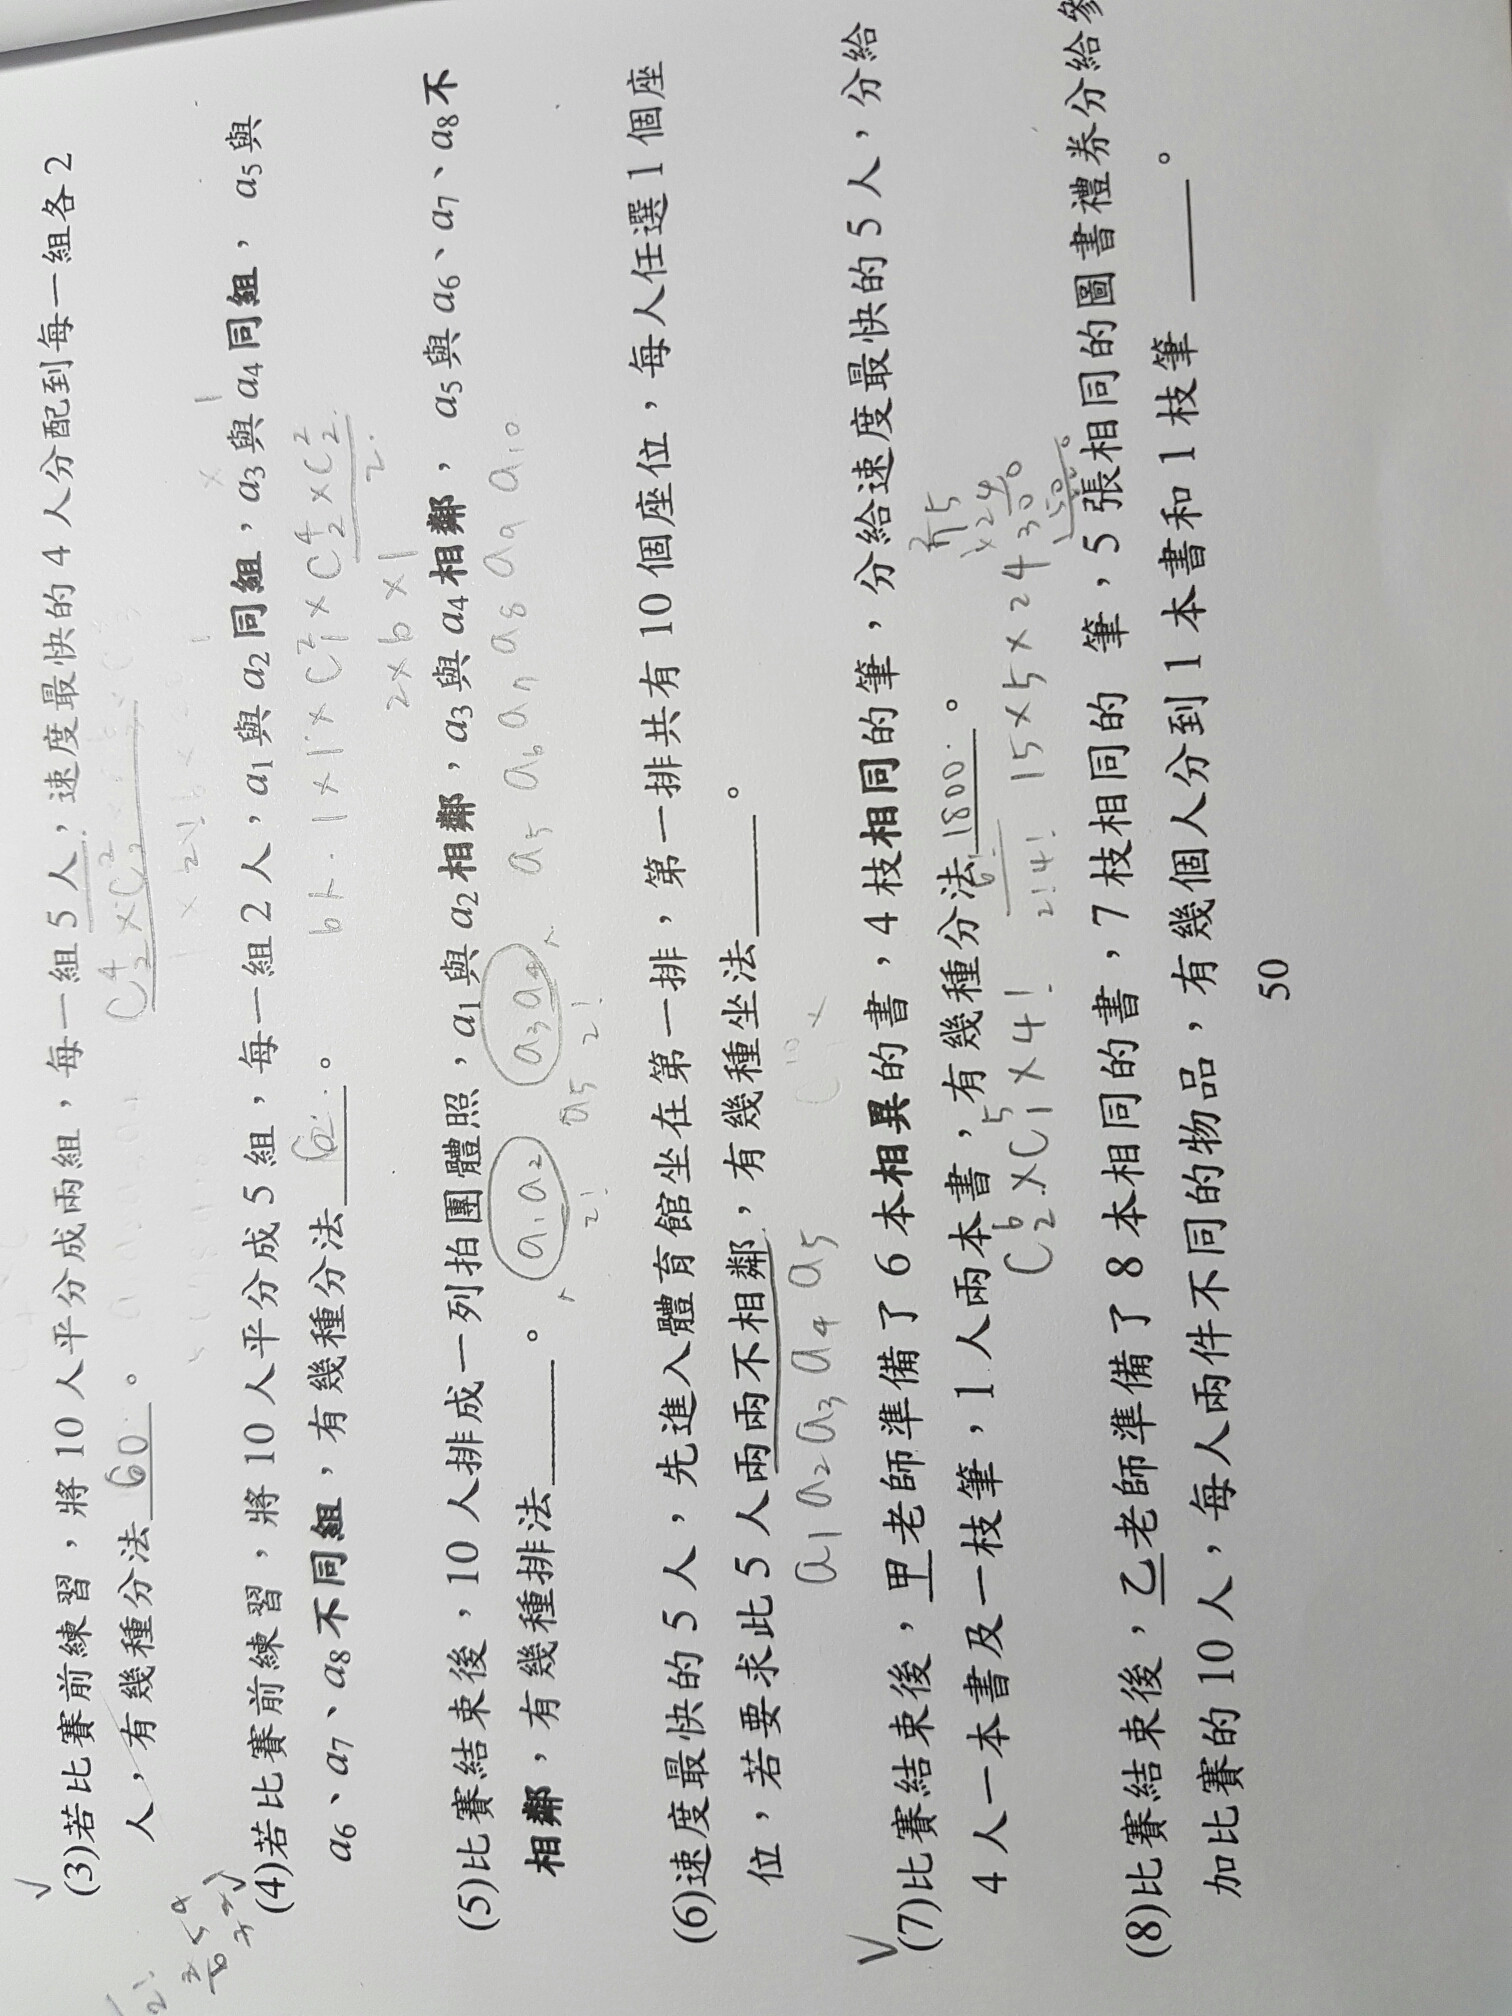 (3)若比賽前練習，將10人平分成兩組，每一組5人，速度最快的4人分配到每一組各2
人，有幾種分法 60 。
(4)若比賽前練習，將10人平分成5組，每一組2人，a1與a2同組，a3與a4同組，a5與
a6、a7、a8不同組，有幾種分法 6 。
1×1×C²₁×C⁴₂×C²₂
2
2×6×1
(5)比賽結束後，10人排成一列拍團體照，a1與a2相鄰，a3與a4相鄰，a5與a6、a7、a8不
相鄰，有幾種排法 。
a1 a2 a3 a4 a5 a6 a7 a8 a9 a10
2! 2!
(6)速度最快的5人，先進入體育館坐在第一排，第一排共有10個座位，每人任選1個座
位，若要求此5人兩兩不相鄰，有幾種坐法 。
a1 a2 a3 a4 a5
(7)比賽結束後，甲老師準備了6本相異的書，4枝相同的筆，分給速度最快的5人，分給
4人一本書及一枝筆，1人兩本書，有幾種分法 1800 。
C⁶₂×C⁵₁×4! 6! 2!4! 15×5×24
(8)比賽結束後，乙老師準備了8本相同的書，7枝相同的筆，5張相同的圖書禮券分給參
加比賽的10人，每人兩件不同的物品，有幾個人分到1本書和1枝筆 。
50